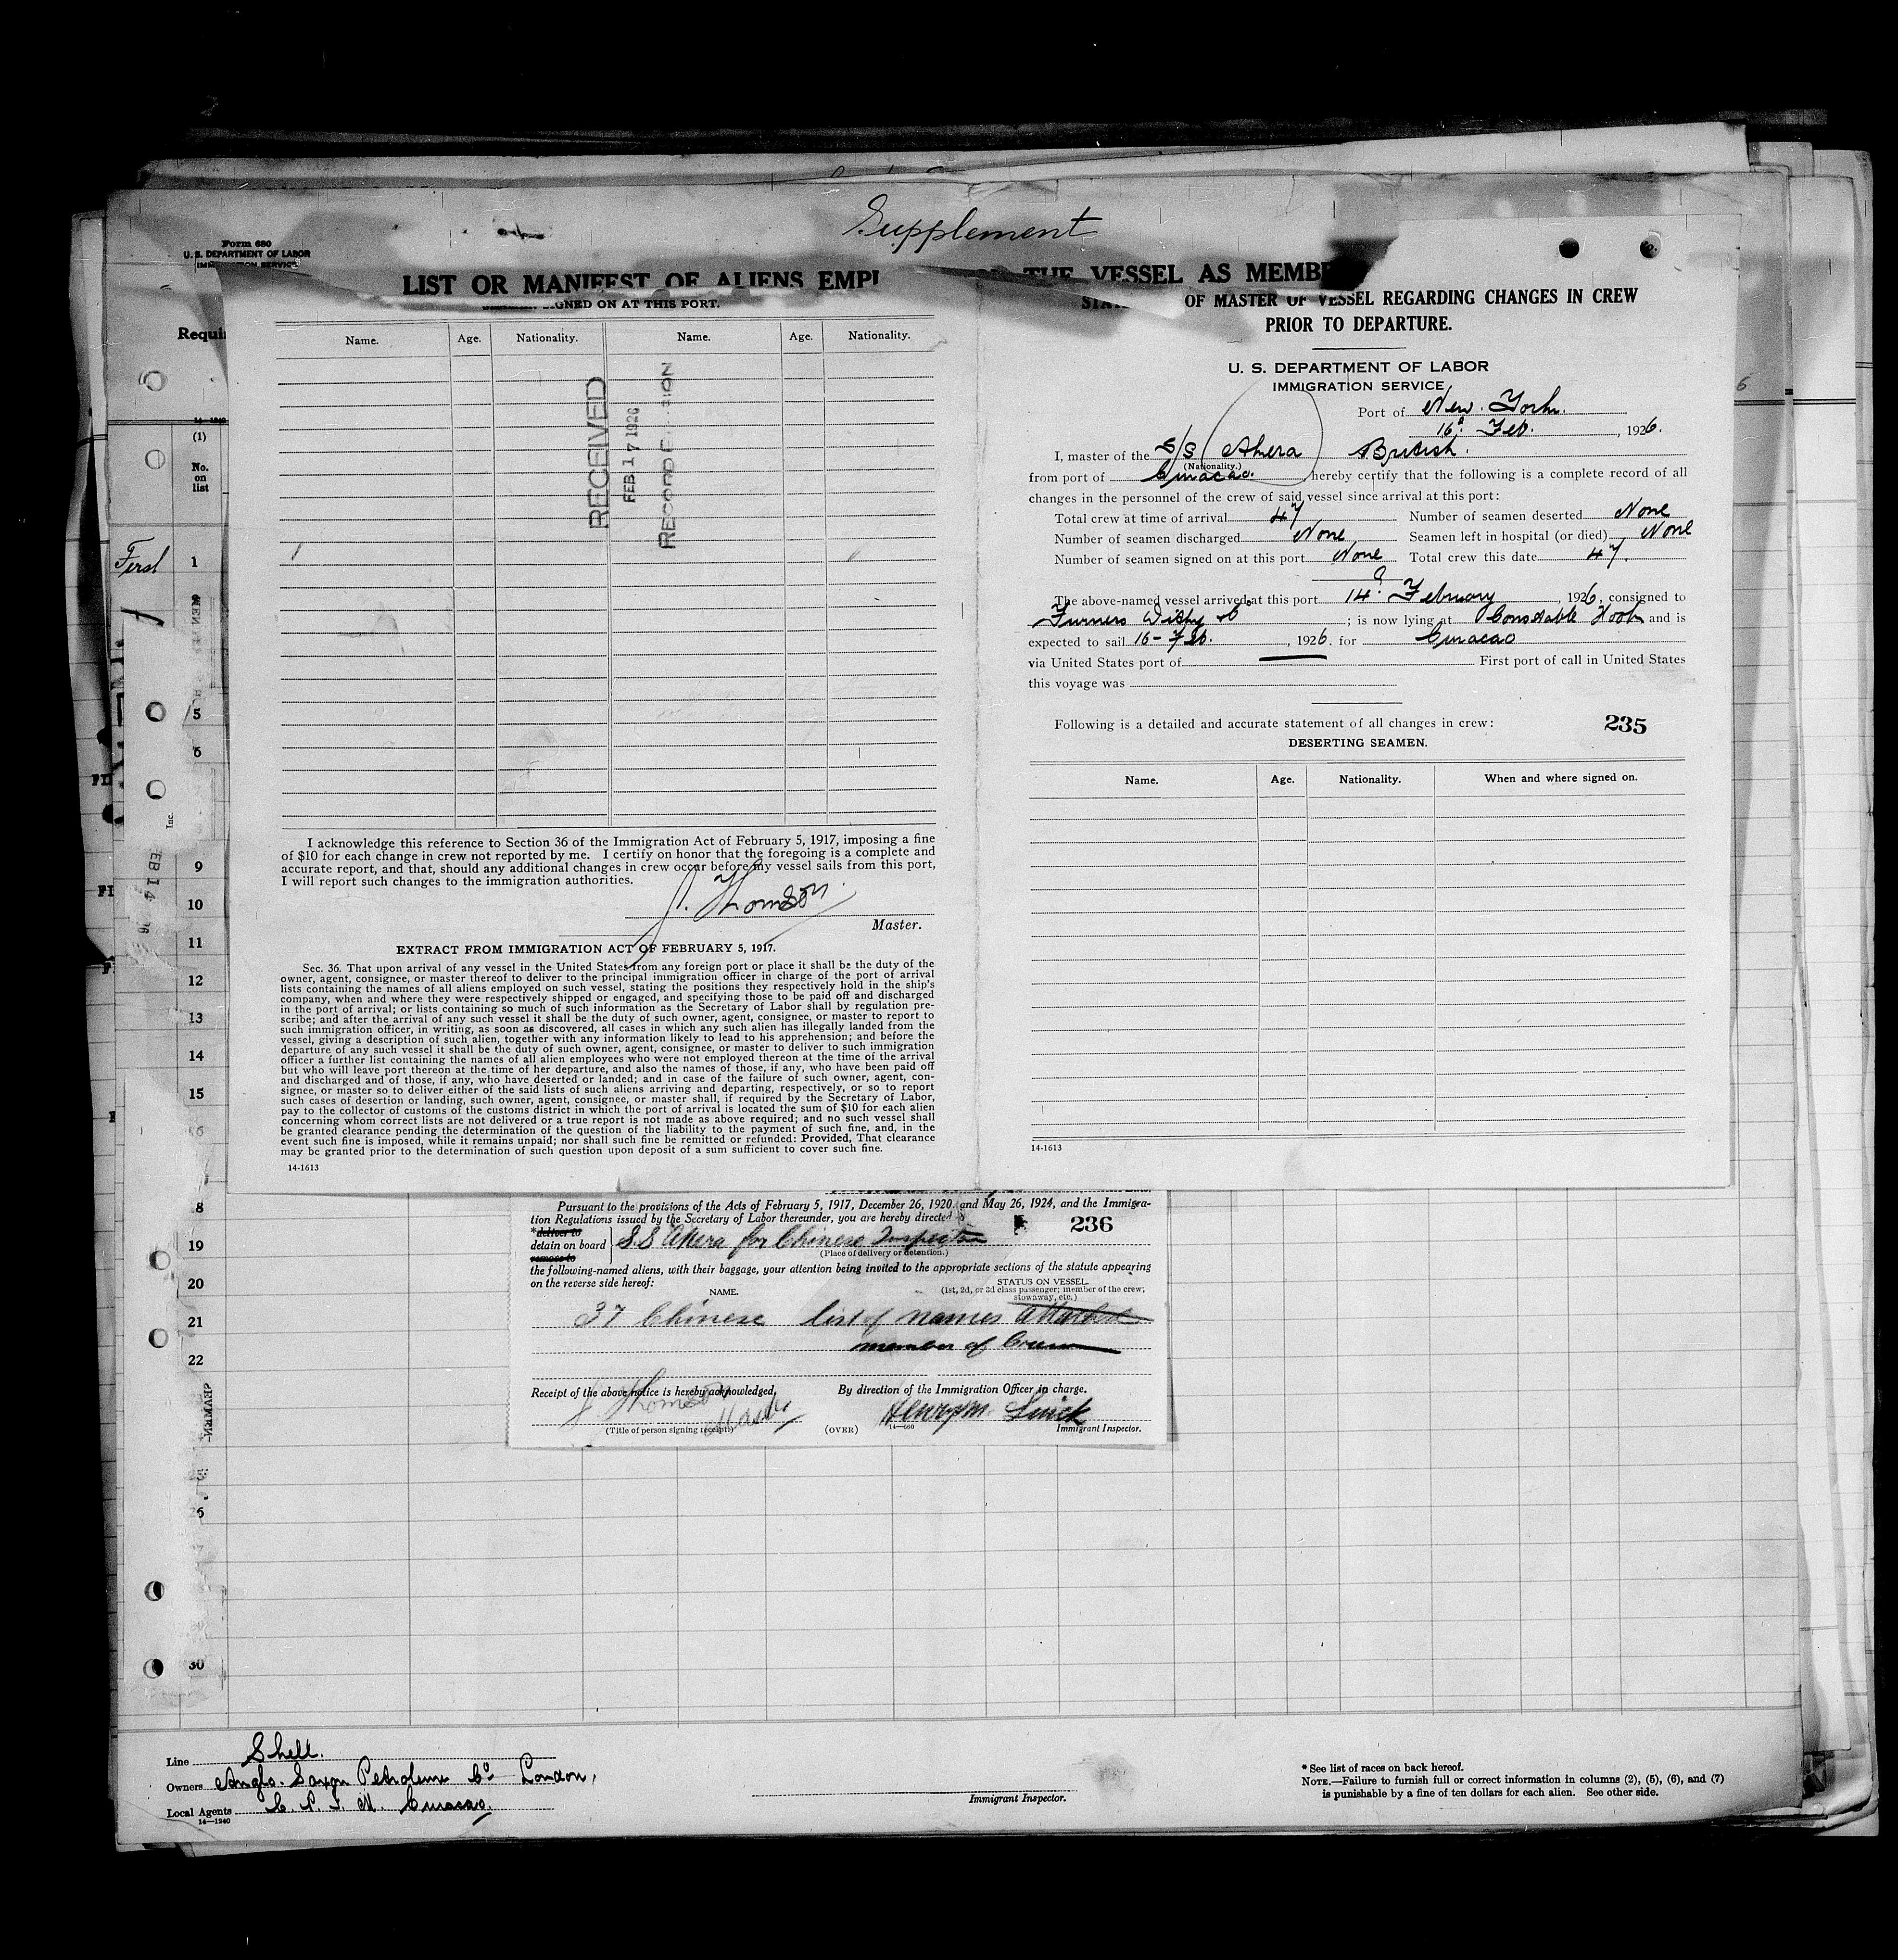 Supplement
Form 680
U. S. DEPARTMENT OF LABOR
IMMIGRATION SERVICE
LIST OR MANIFEST OF ALIENS EMPL
THE VESSEL AS MEMBE
Requi
(1)
No.
on
list
First
1
5
6
9
10
11
12
13
14
15
8
19
20
21
22
30
SIGNED ON AT THIS PORT.
Name. Age. Nationality. Name. Age. Nationality.
RECEIVED
FEB 17 1926
I acknowledge this reference to Section 36 of the Immigration Act of February 5, 1917, imposing a fine
of $10 for each change in crew not reported by me. I certify on honor that the foregoing is a complete and
accurate report, and that, should any additional changes in crew occur before my vessel sails from this port,
I will report such changes to the immigration authorities.
J. Thomson
Master.
EXTRACT FROM IMMIGRATION ACT OF FEBRUARY 5, 1917.
Sec. 36. That upon arrival of any vessel in the United States from any foreign port or place it shall be the duty of the
owner, agent, consignee, or master thereof to deliver to the principal immigration officer in charge of the port of arrival
lists containing the names of all aliens employed on such vessel, stating the positions they respectively hold in the ship's
company, when and where they were respectively shipped or engaged, and specifying those to be paid off and discharged
in the port of arrival; or lists containing so much of such information as the Secretary of Labor shall by regulation pre-
scribe; and after the arrival of any such vessel it shall be the duty of such owner, agent, consignee, or master to report to
such immigration officer, in writing, as soon as discovered, all cases in which any such alien has illegally landed from the
vessel, giving a description of such alien, together with any information likely to lead to his apprehension; and before the
departure of any such vessel it shall be the duty of such owner, agent, consignee, or master to deliver to such immigration
officer a further list containing the names of all alien employees who were not employed thereon at the time of the arrival
but who will leave port thereon at the time of her departure, and also the names of those, if any, who have been paid off
and discharged and of those, if any, who have deserted or landed; and in case of the failure of such owner, agent, con-
signee, or master so to deliver either of the said lists of such aliens arriving and departing, respectively, or so to report
such cases of desertion or landing, such owner, agent, consignee, or master shall, if required by the Secretary of Labor,
pay to the collector of customs of the customs district in which the port of arrival is located the sum of $10 for each alien
concerning whom correct lists are not delivered or a true report is not made as above required; and no such vessel shall
be granted clearance pending the determination of the question of the liability to the payment of such fine, and, in the
event such fine is imposed, while it remains unpaid; nor shall such fine be remitted or refunded: Provided, That clearance
may be granted prior to the determination of such question upon deposit of a sum sufficient to cover such fine.
14-1613
OF MASTER OF VESSEL REGARDING CHANGES IN CREW
PRIOR TO DEPARTURE.
U. S. DEPARTMENT OF LABOR
IMMIGRATION SERVICE
Port of New York.
16 Feb. , 1926.
I, master of the S/S Akera British.
(Nationality.)
from port of Curacao. hereby certify that the following is a complete record of all
changes in the personnel of the crew of said vessel since arrival at this port:
Total crew at time of arrival 47 Number of seamen deserted None
Number of seamen discharged None Seamen left in hospital (or died) None
Number of seamen signed on at this port None Total crew this date 47.
The above-named vessel arrived at this port 14 February , 1926, consigned to
Furness Withy & Co ; is now lying at Constable Hook and is
expected to sail 16-Feb. , 1926. for Curacao
via United States port of First port of call in United States
this voyage was
Following is a detailed and accurate statement of all changes in crew: 235
DESERTING SEAMEN.
Name. Age. Nationality. When and where signed on.
14-1613
Pursuant to the provisions of the Acts of February 5, 1917, December 26, 1920, and May 26, 1924, and the Immigra-
tion Regulations issued by the Secretary of Labor thereunder, you are hereby directed 236
*deliver to
detain on board S.S Akera for Chinese Inspector
remove to
(Place of delivery or detention.)
the following-named aliens, with their baggage, your attention being invited to the appropriate sections of the statute appearing
on the reverse side hereof:
NAME. STATUS ON VESSEL.
(1st, 2d, or 3d class passenger; member of the crew;
stowaway, etc.)
37 Chinese list of names attached
member of Crew
Receipt of the above notice is hereby acknowledged, By direction of the Immigration Officer in charge.
J. Thomson
Master
(Title of person signing receipt) (OVER) 14-660 Immigrant Inspector.
Line Shell.
Owners Anglo-Saxon Petroleum Co London,
Local Agents C. P. I. M. Curacao.
14-1240
Immigrant Inspector.
* See list of races on back hereof.
NOTE.—Failure to furnish full or correct information in columns (2), (5), (6), and (7)
is punishable by a fine of ten dollars for each alien. See other side.